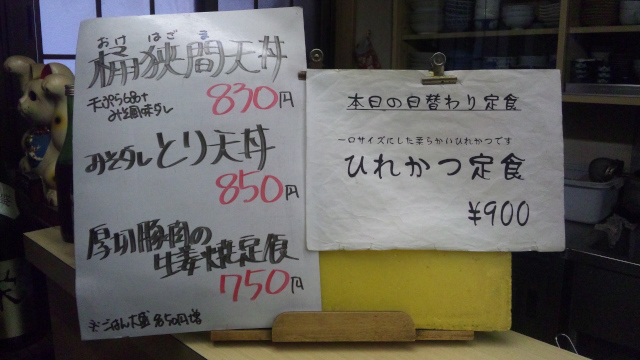 おけはざま
桶狭間天丼
みそ風味ダレ
830円
みそダレとり天丼
850円
厚切豚肉の
生姜焼定食
750円
本日の日替わり定食
一口サイズにした柔らかいひれかつです
ひれかつ定食
¥900